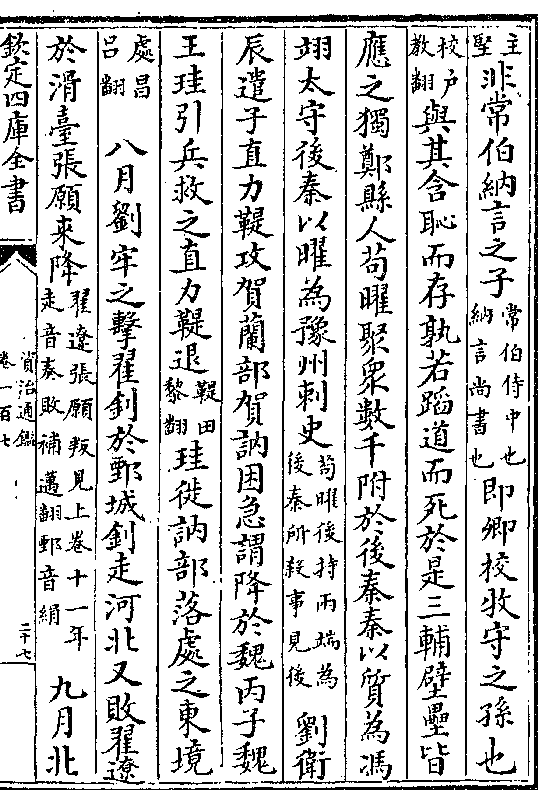 主堅非常伯納言之子常伯侍中也納言尚書也即卿校牧守之孫也
校户教翻與其含恥而存孰若蹈道而死於是三輔壁壘皆
應之獨鄭縣人苟曜聚衆數千附於後秦秦以質為馮
翊太守後秦以曜為豫州刺史苟曜後持兩端為後秦所殺事見後劉衛
辰遣子直力鞮攻賀蘭部賀訥困急謂降於魏丙子魏
王珪引兵救之直力鞮退鞮田黎翻珪徙訥部落處之東境
處昌吕翻八月劉牢之擊翟釗於鄄城釗走河北又敗翟遼
於滑臺張願来降翟遼張願叛見上卷十一年走音奏敗補邁翻鄄音絹九月北
欽定四庫全書
資治通鑑
卷一百七
二十七